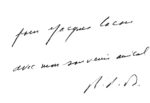 pour Jacques Lacan
avec mon souvenir amical